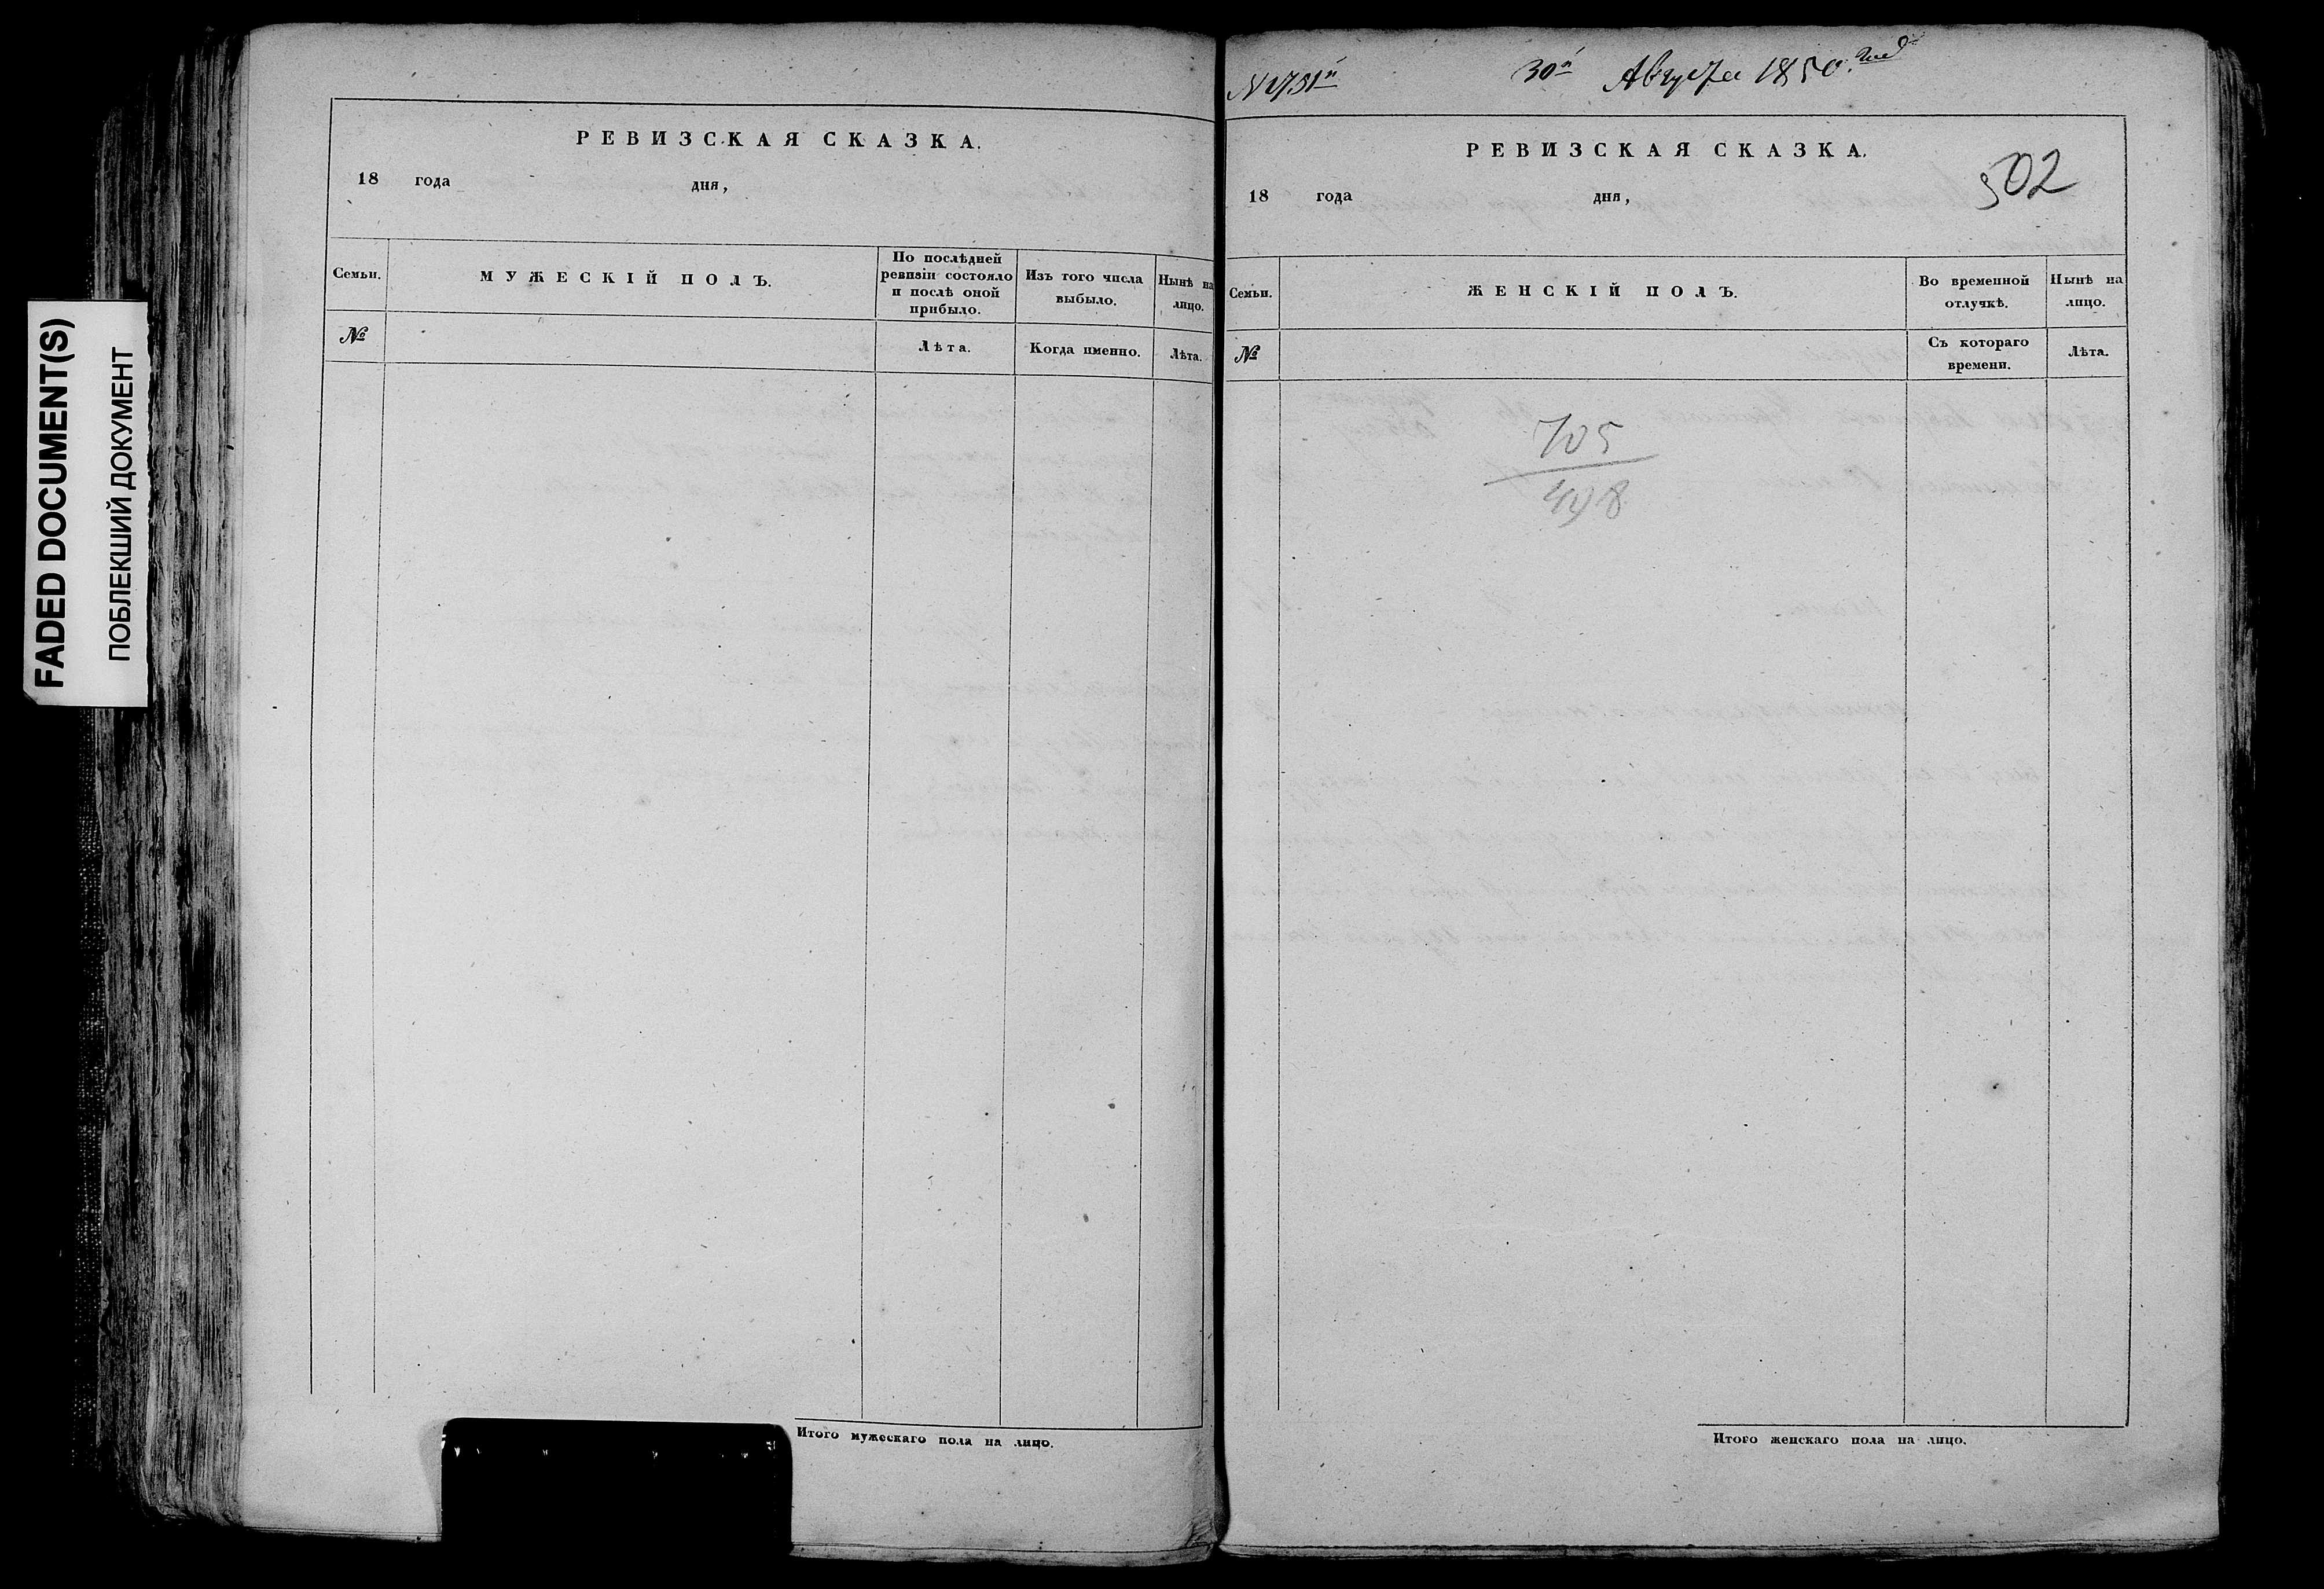 FADED DOCUMENT(S)
ПОБЛЕКШИЙ ДОКУМЕНТ
РЕВИЗСКАЯ СКАЗКА.
18 года дня,
Семьи.
МУЖЕСКІЙ ПОЛЪ.
По послѣдней
ревизіи состояло
и послѣ оной
прибыло.
Изъ того числа
выбыло.
Нынѣ на
лицо.
№
Лѣта.
Когда именно.
Лѣта.
Итого мужескаго пола на лицо.
30го Августа 1850 год
РЕВИЗСКАЯ СКАЗКА.
502
18 года дня,
Семьи.
ЖЕНСКІЙ ПОЛЪ.
Во временной
отлучкѣ.
Нынѣ на
лицо.
№
Съ котораго
времени.
Лѣта.
705
498
Итого женскаго пола на лицо.